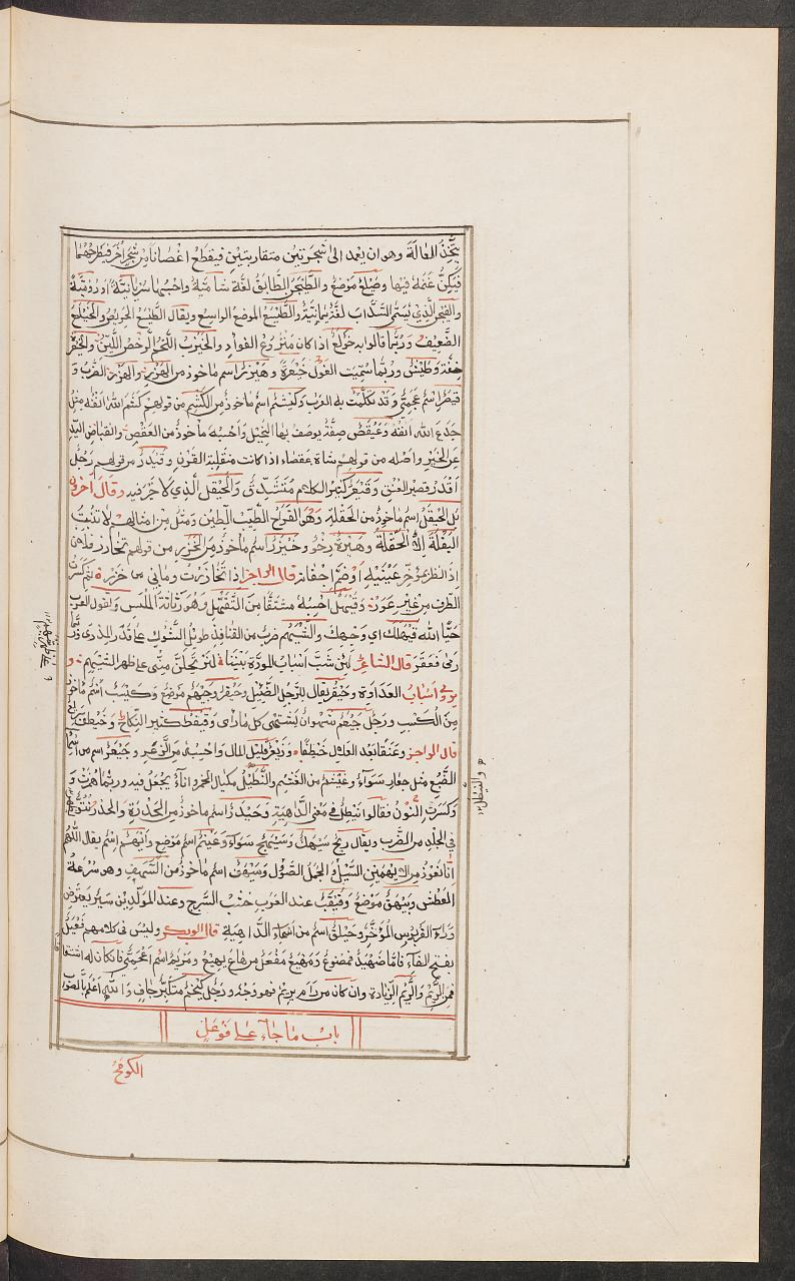 يتّخذ العالة وهو ان يعمد الى شجرتين متقاربتين فيقطع اغصانا من شجر اخر فيطرحهما
غنمه فيها وضيلع موضع والطيجن الطابق لغة شامية واحسبها سريانية او رومية
والفيجن الذي يسمى السذاب لغة شامية والطيسع الموضع الواسع ويقال الطيسع الحريص والخيلع
الضعيف وربما قالوا به خولع اذا كان الفؤاد والخيزب اللحم الرخص اللين
خفة وطيش وربما سميت الغول خيعرة وهيزر اسم ماخوذ من الهزر والهزر الضرب و
فيطر اسم عجمي وقد تكلمت به العرب وكيشم اسم ماخوذ من الكشم من قولهم كشم الله انفه مثل
جدع الله انفه وعيقص صفة يوصف بها البخيل واحسبه ماخوذ من العقص وانقباض اليد
عن الخير واصله من قولهم شاة عقصاء اذا كانت منقلبة القرن وقيدر من قولهم رجل
اقدر قصير العنق وقيعر كثير الكلام متشدق والحيقل الذي لا خير فيه وقال اخرون
بل الحيقل اسم ماخوذ من الحقلة وهو القراح الطيب الطين ومثل من امثالهم لا تنبت
البقلة الا الحقلة وهنبرة رخو وخيزر اسم ماخوذ من الخزر من قولهم تخازر فلان
اذا نظر بمؤخر عينيه او ضم اجفانه قال الراجز اذا تخازرت وما بي من خزر ثم كسرت
الطرف من غير عور وقيهل احسبه مشتقا من التقهل وهو رثاثة الملبس ويقول العرب
حيا الله قيهلك اي وجهك والشيهم ضرب من القنافذ طويل الشوك على قدر المذرى ربما
رمى فعقر قال الشاعر لئن شب اسباب المودة بيننا لترتحلن مني على ظهر الشيهم و
يروى اسباب العداوة وحيفر يقال للرجل الضئيل وجيهم موضع وكيسب اسم ماخوذ
من الكسب ورجل جيعم شهوان يشتهي كل ما راى وقيقط كثير النكاح وخيطف
قال الراجز وعنقا بعد الكلال خيطفا وزيعر قليل المال واحسبه من الزعر وجيعر اسم من اسماء
الضبع مثل جعار سواء وغيثم من الغثم والنيطل مكيال الخمر واناء يجعل فيه وربما همزت و
وكسرت النون فقالوا نيطل في معنى الداهية وحيدر اسم ماخوذ من الحدارة والحدر نتوء
في الجلد من الضرب ويقال ريح سيهك وسيهج سواء وعيثم اسم موضع وايهم اسم يقال اللهم
انا نعوذ بك من الايهمين السيل والجمل الصؤول وسيهف اسم ماخوذ من السهف وهو سرعة
العطش وبيهق موضع وقيقب عند العرب خشب السرج وعند المولدين سير يعترض
وراء القربوس المؤخر وخيلق اسم من اسماء الداهية قال ابو بكر وليس في كلامهم فعيل
بفتح الفاء فاما ضهيد فمصنوع ومهيع مفعل من هاع يهيع ومريم اسم اعجمي فان كان له اشتقاق
فمن الريم والريم الزيادة وان كان من رام يريم فهو وجه ورجل كيخم متكبر جاف والله اعلم بالصواب
باب ما جاء على فوعل
الكوفح
والنيطل